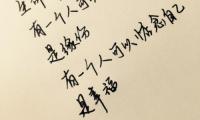 有一个人可以
是缘份
有一个人可以惦念自己
是幸福